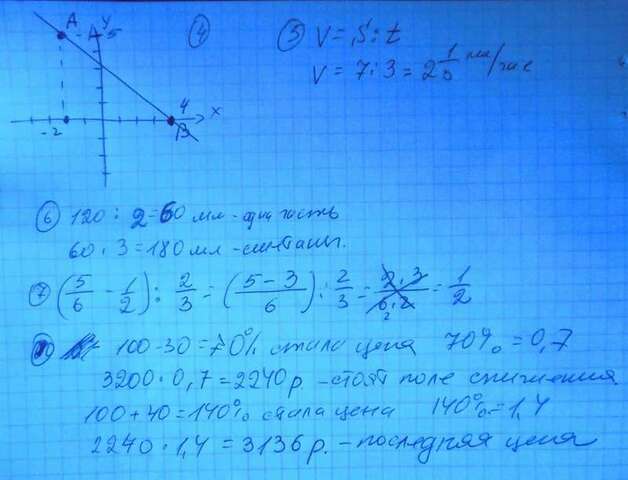 A y 5
-2 4 B x
④ ⑤ V = S : t
V = 7 : 3 = 2 1/3 км/час
⑥ 120 : 2 = 60 мл - одна часть
60 · 3 = 180 мл - сметаны.
⑦ (5/6 - 1/2) : 2/3 = ((5 - 3)/6) : 2/3 = (2 · 3)/(6 · 2) = 1/2
⑩ 100 - 30 = 70% стала цена 70% = 0,7
3200 · 0,7 = 2240 р - стоит поле снижения
100 + 40 = 140% стала цена 140% = 1,4
2240 · 1,4 = 3136 р. - последняя цена